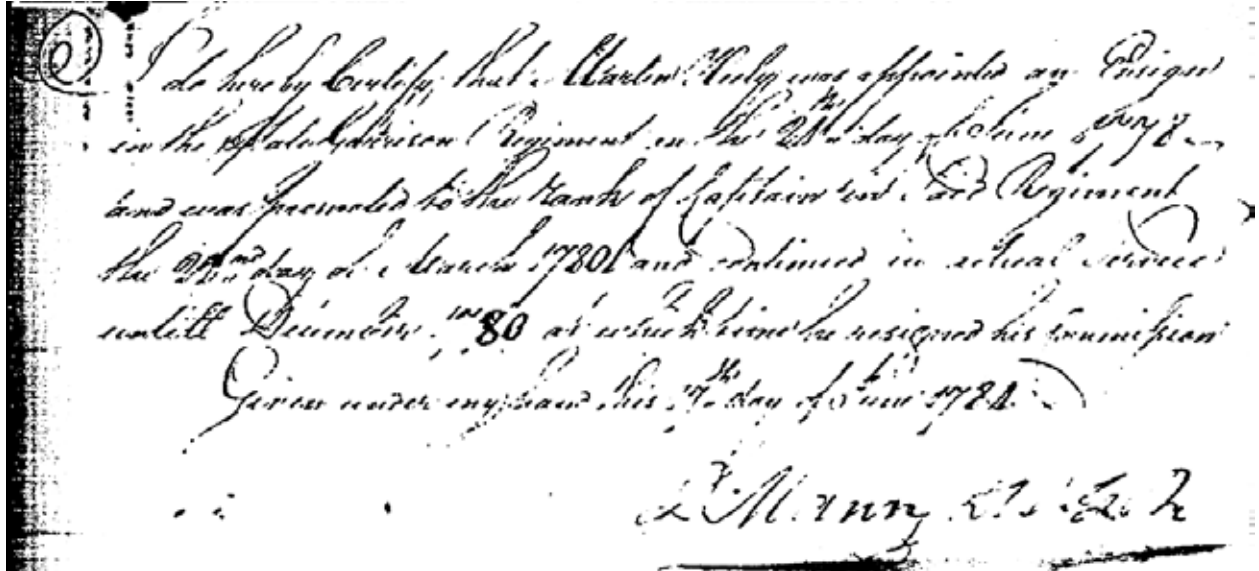 I do hereby Certify, that Martin Healy was appointed an Ensign
in the State Garrison Regiment on the 24th day of June 1778
and was promoted to the Rank of Captain in said Regiment
the 22nd day of March 1780 and continued in actual Service
untill December 1780 at which time he resigned his Commission
Given under my hand this 17th day of June 1784
Mann